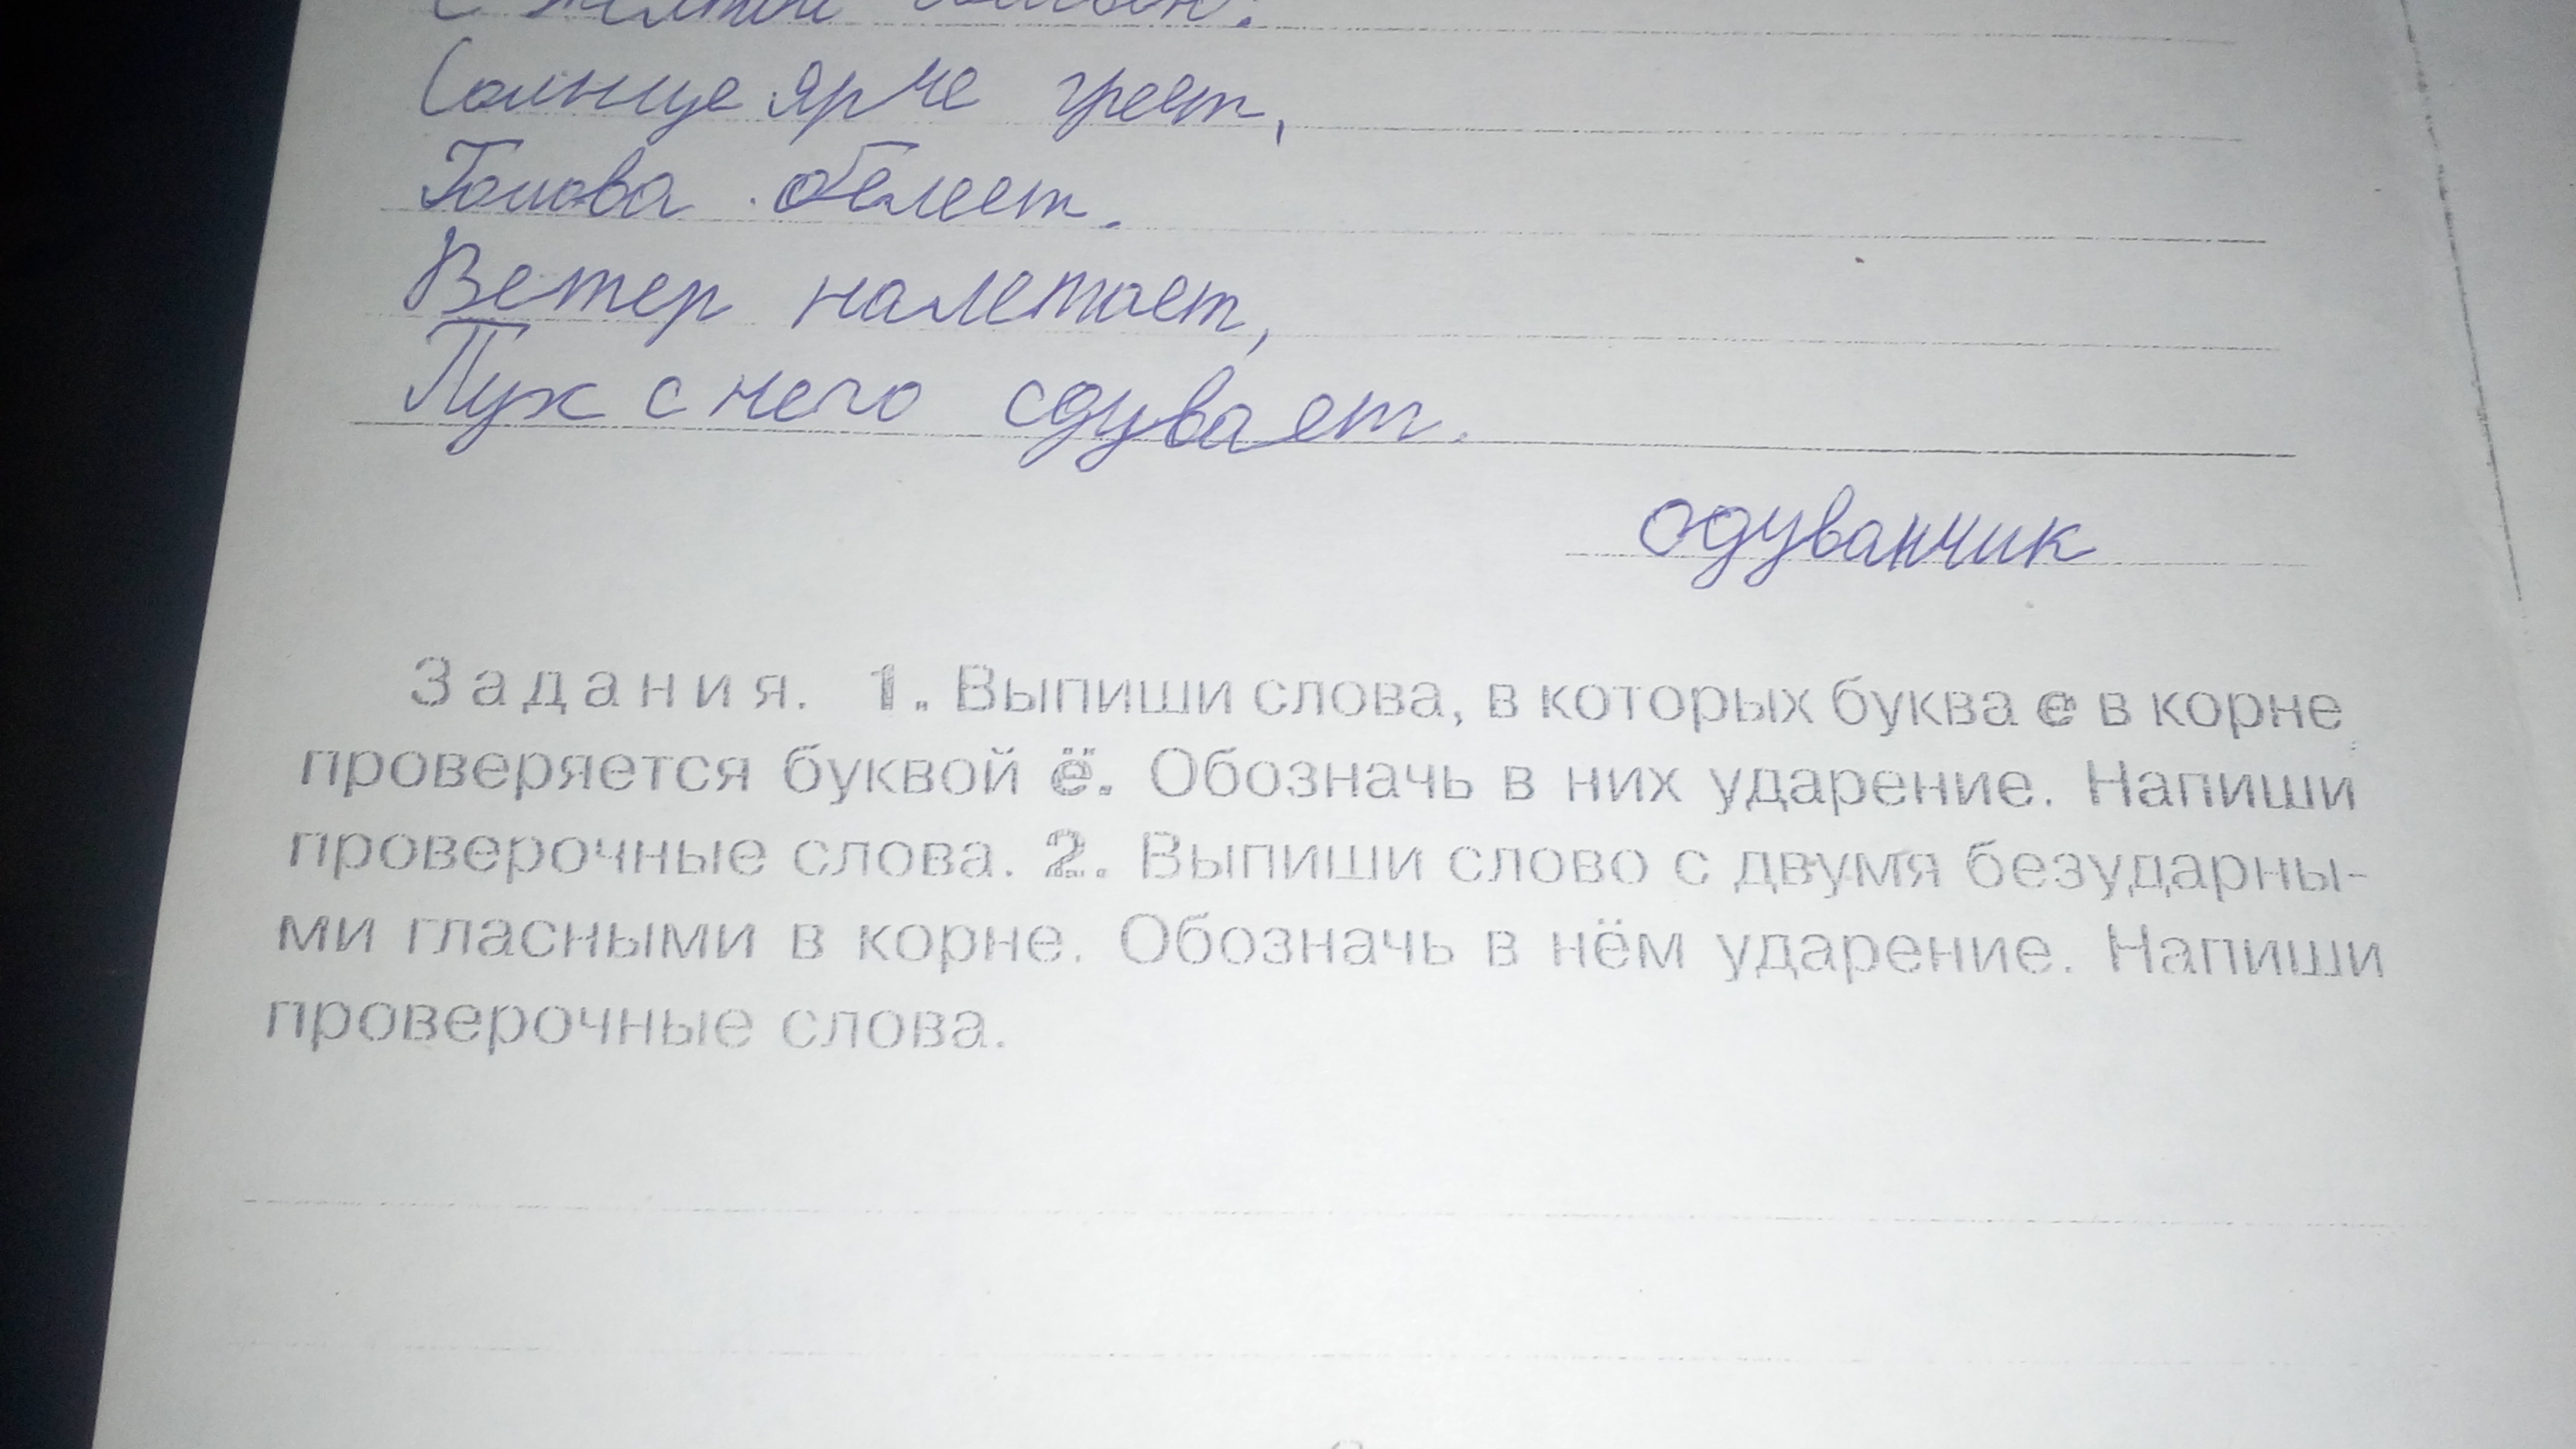 Солнце ярче греет,
Голова белеет.
Ветер налетает,
Пух с него сдувает.
одуванчик
Задания. 1. Выпиши слова, в которых буква е в корне
проверяется буквой ё. Обозначь в них ударение. Напиши
проверочные слова. 2. Выпиши слово с двумя безударны-
ми гласными в корне. Обозначь в нём ударение. Напиши
проверочные слова.